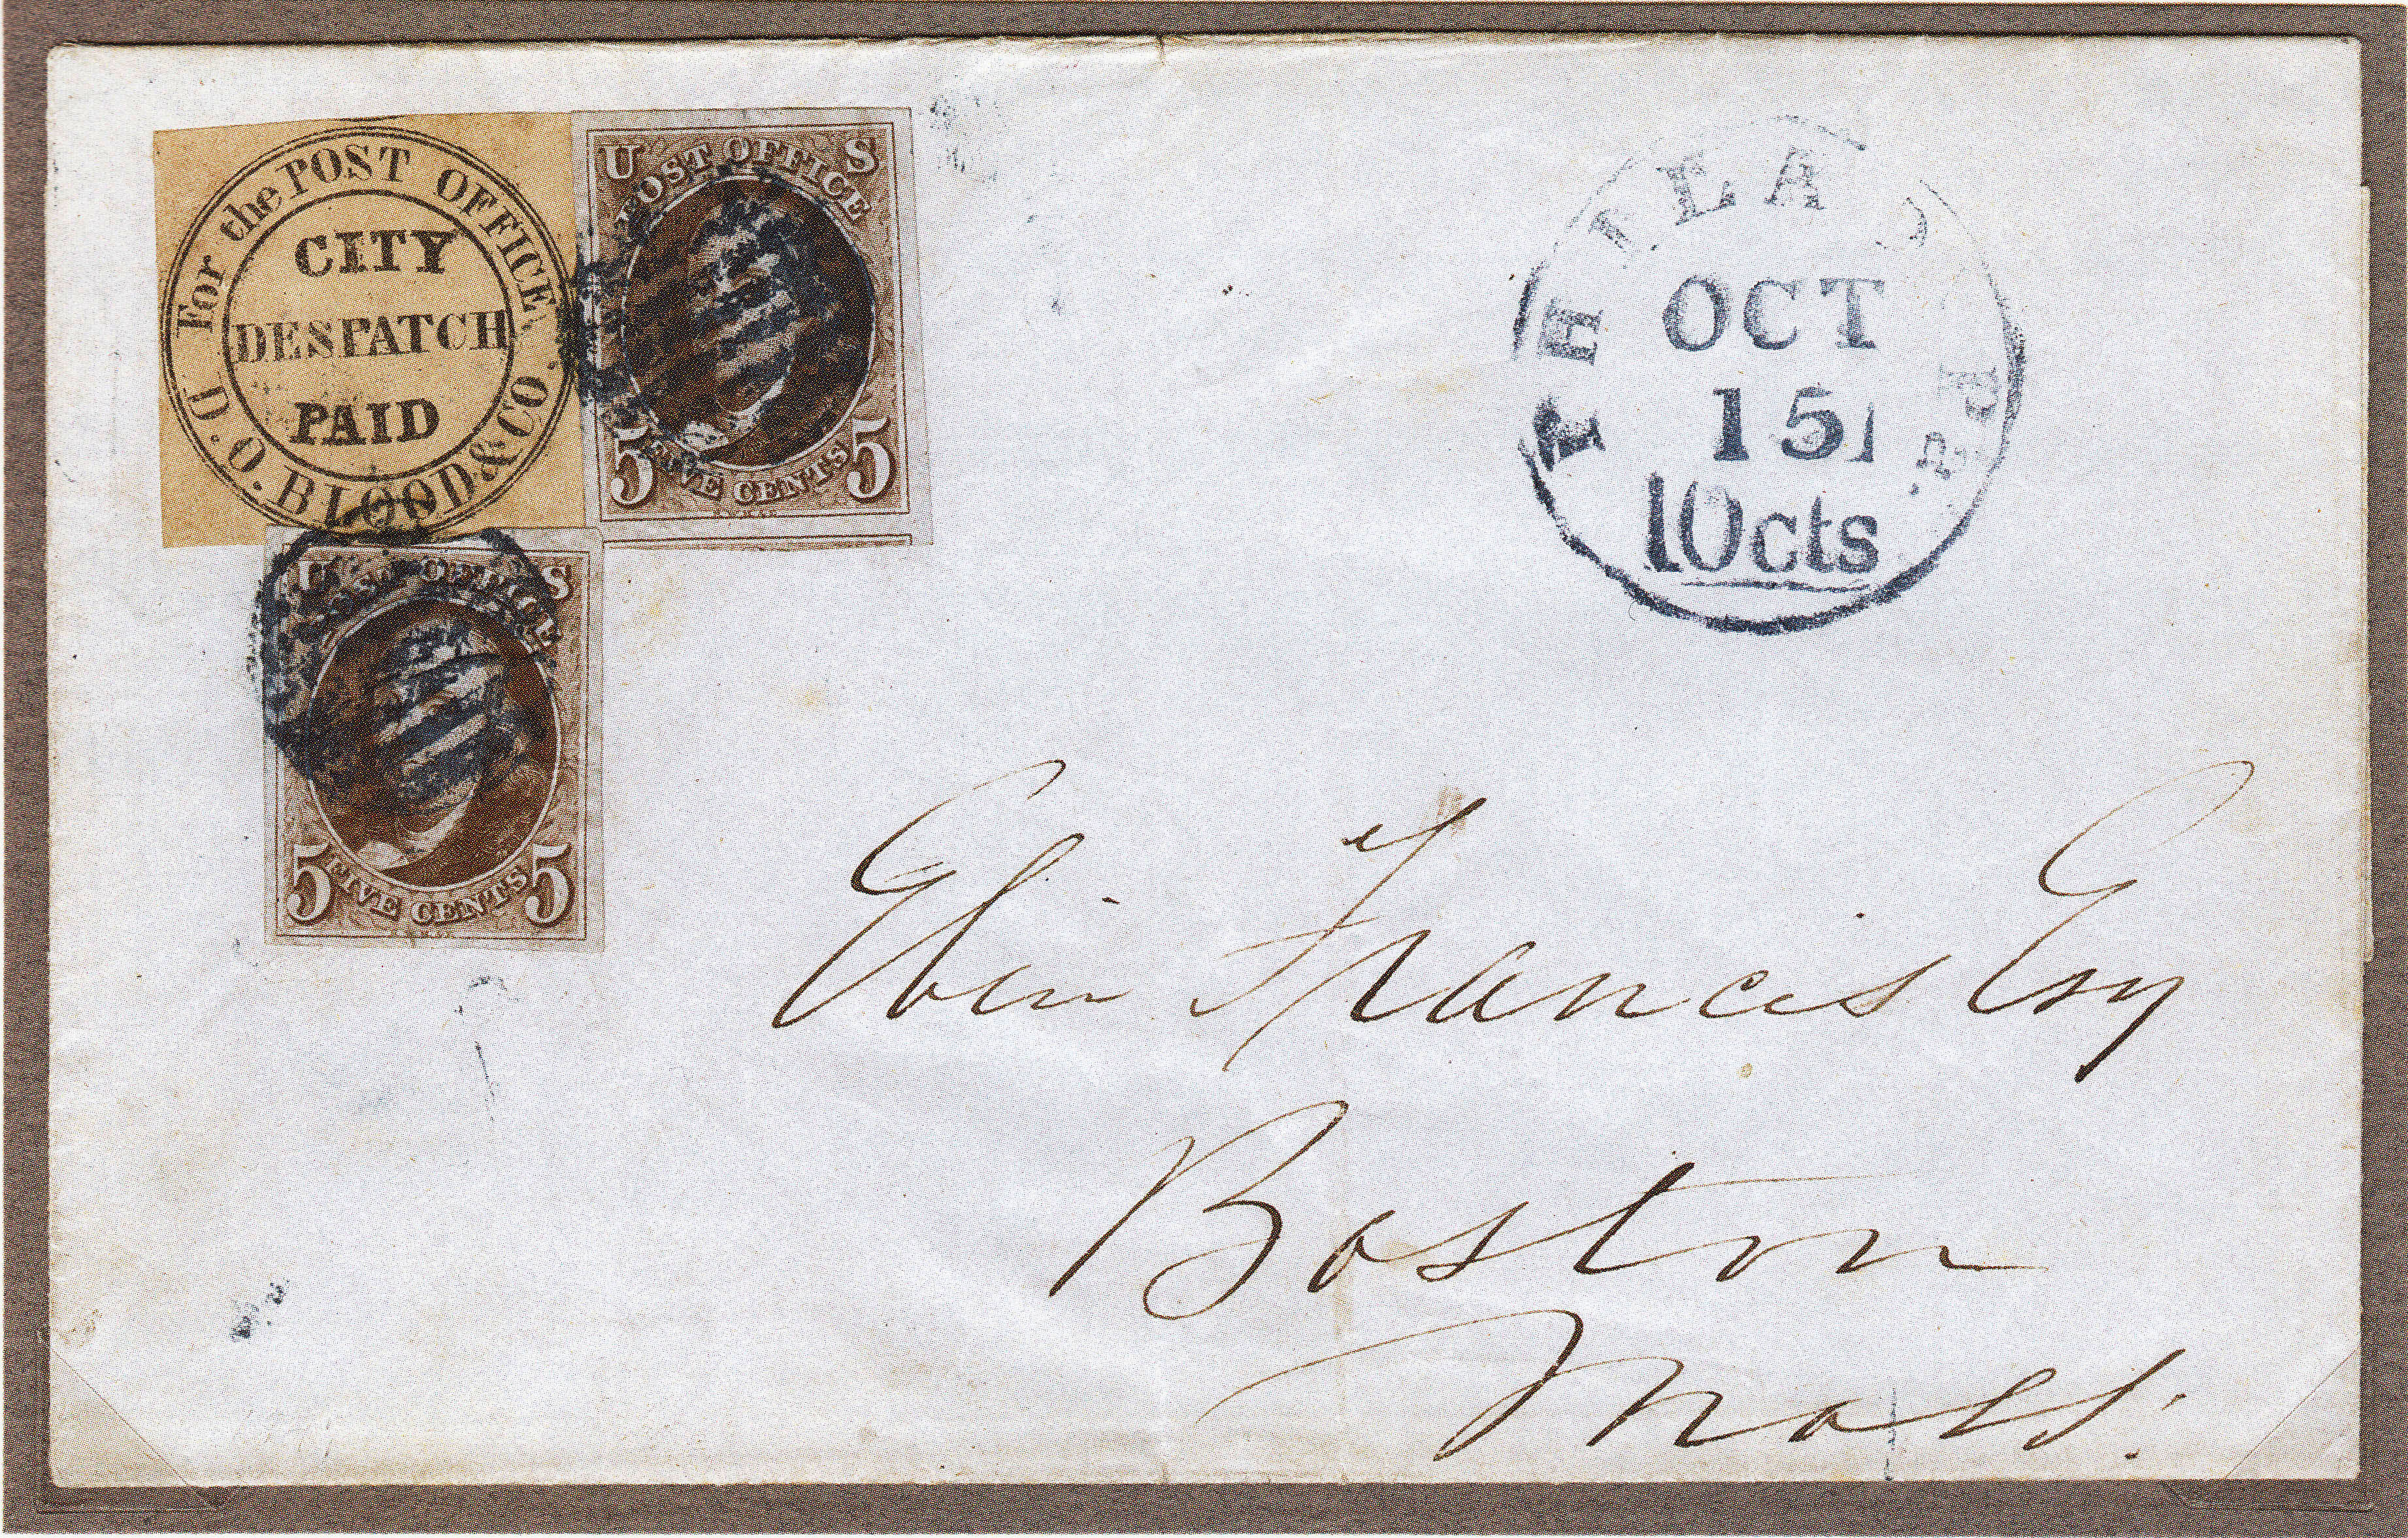 For the POST OFFICE
CITY
DESPATCH
PAID
D.O. BLOOD & CO.
U S
POST OFFICE
5 FIVE CENTS 5
U S
POST OFFICE
5 FIVE CENTS 5
PHILADE Pa.
OCT
15
10cts
Eben Francis Esq
Boston
Mass.